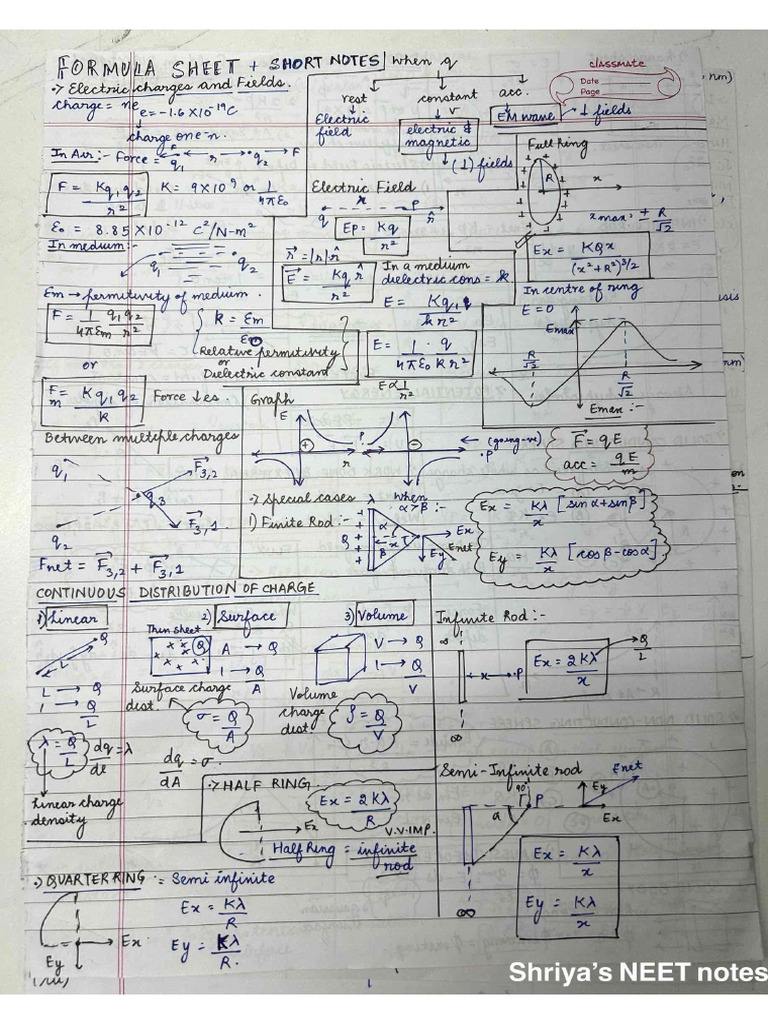 FORMULA SHEET + SHORT NOTES
when q
classmate
Date
Page
:→ Electric charges and Fields.
charge = ne
e = -1.6 × 10⁻¹⁹C
charge one-n.
rest
constant v
acc.
Electric field
electric & magnetic
(⊥) fields
EM wave → ⊥ fields
In Air :- Force =
F
q₁ r q₂ F
F = Kq₁q₂/r²
K = 9×10⁹ or 1/4πε₀
ε₀ = 8.85×10⁻¹² C²/N-m²
In medium:-
q₁ q₂
εm → permitivity of medium.
F = 1/4πεm q₁q₂/r²
k = εm/ε₀
Relative permitivity
or
Dielectric constant
or
F/m = Kq₁q₂/k
Force ↓es.
Electric Field
x
q P r̂
Ep = Kq/r²
r⃗ = |r| r̂
E⃗ = Kq r̂/r²
In a medium
dielectric cons = k
E = Kq₁/kr²
E = 1·q/4πε₀kr²
E∝1/r²
Full ring
R x
xmax = ± R/√2
Ex = KQx/(x²+R²)^3/2
In centre of ring
E = 0
Emax
R/√2
R/√2
Emax :-
Graph
E
P
r
(going -ve)
.P
F⃗ = qE
acc = qE/m
Between multiple charges
q₁ F⃗3,2
q₃
q₂ F⃗3,1
Fnet = F⃗3,2 + F⃗3,1
:→ Special cases
1) Finite Rod :-
λ when α>β :-
Q α β x Ex Ey Enet
Ex = Kλ/x [sin α + sin β]
Ey = Kλ/x [cos β - cos α]
CONTINUOUS DISTRIBUTION OF CHARGE
1) Linear
2) Surface
3) Volume
Q
L
L → Q
1 → Q/L
λ = Q/L
dq/dl = λ
Linear charge density
Thin sheet
(Q)
A → Q
1 → Q/A
Surface charge dist.
σ = Q/A
dq/dA = σ.
V → Q
1 → Q/V
Volume charge dist.
ρ = Q/V
Infinite Rod :-
∞
x .P
∞
Ex = 2Kλ/x
Q/L
:→ HALF RING.
Ex
Ex = 2Kλ/R
V.V.IMP.
Half Ring = infinite rod
Semi-Infinite rod
90° P
a
∞
Ey Enet
Ex
Ex = Kλ/x
Ey = Kλ/x
:→ QUARTER RING := Semi infinite
Ex
Ey
Ex = Kλ/R
Ey = Kλ/R.
1
Shriya's NEET notes